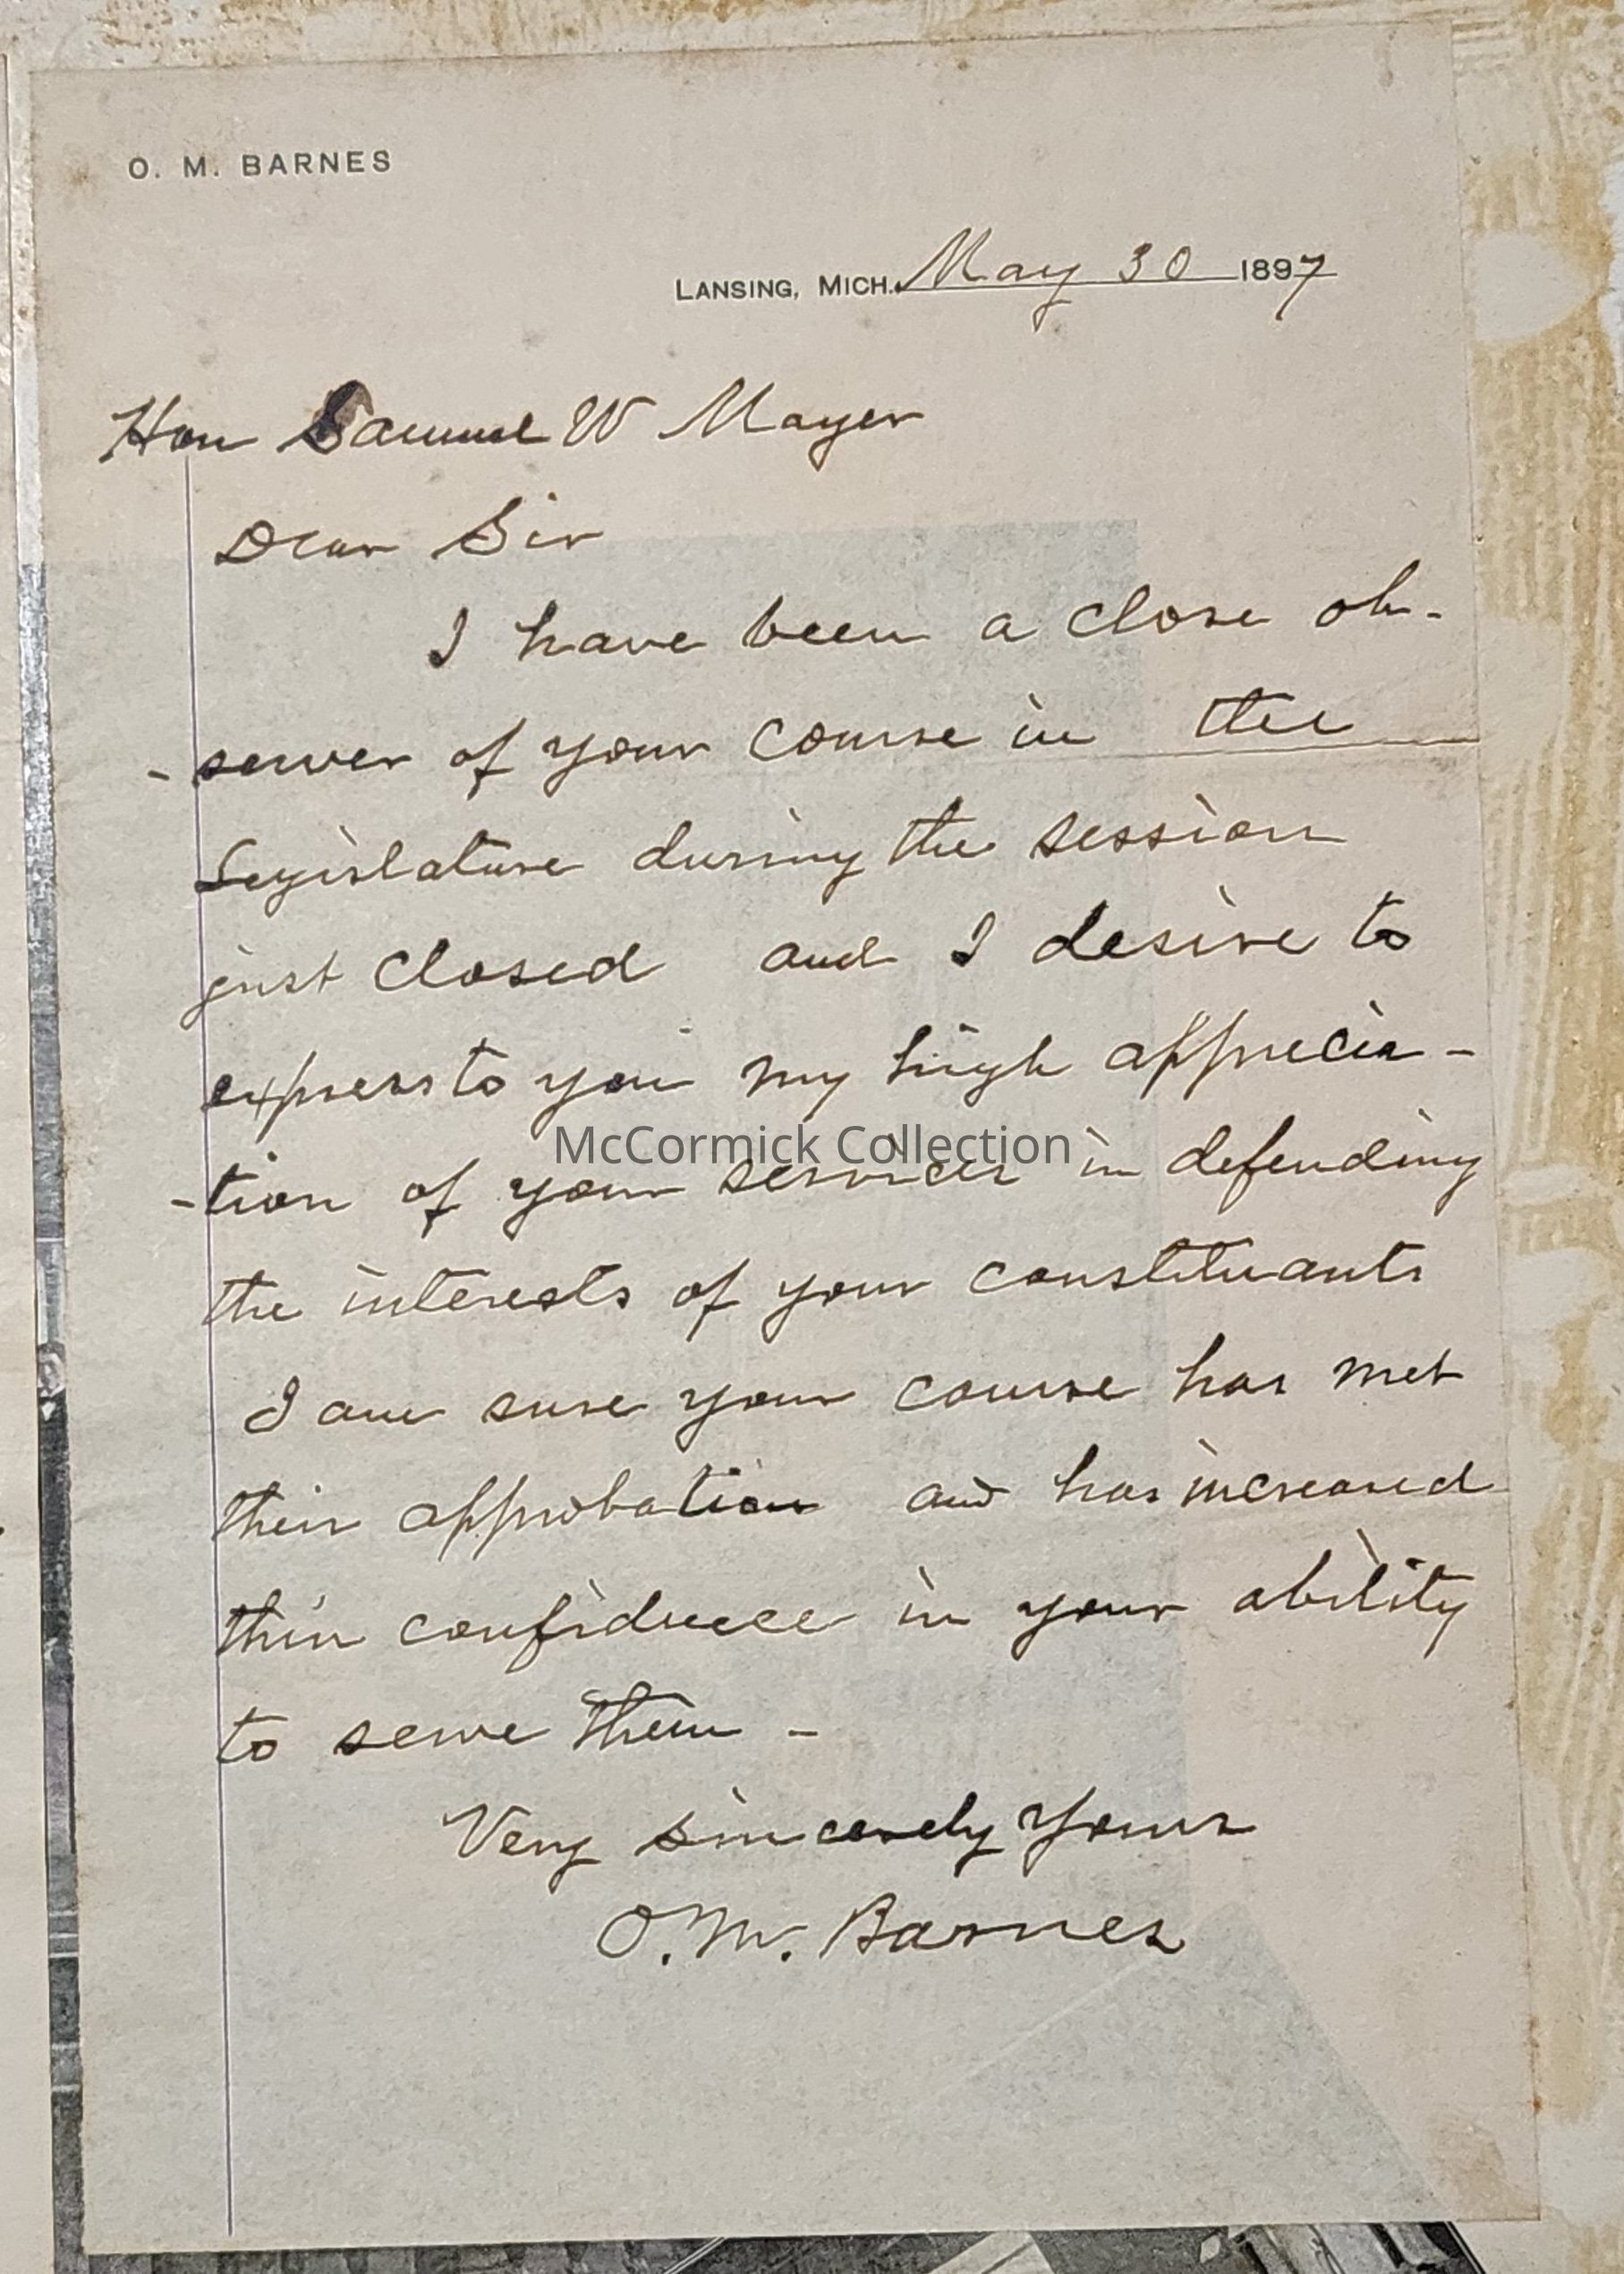 O. M. BARNES
LANSING, MICH. May 30 1897
Hon Samuel W Mayer
Dear Sir
I have been a close ob-
-server of your course in the
Legislature during the session
just closed and I desire to
express to you my high apprecia-
-tion of your services in defending
McCormick Collection
the interests of your constituants
I am sure your course has met
their approbation and has increased
their confidence in your ability
to serve them -
Very sincerely yours
O. M. Barnes